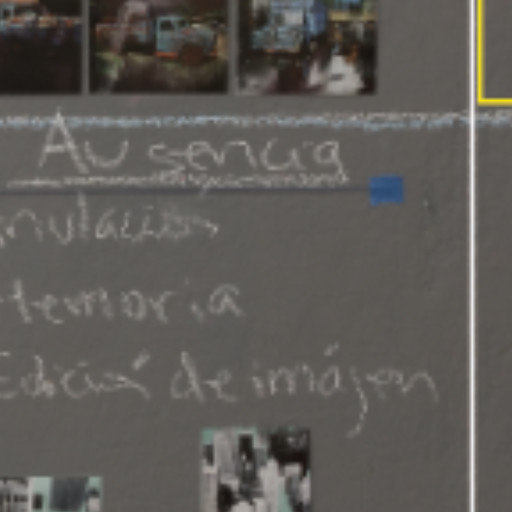 Ausencia
anulación
temoria
Edición de imágen